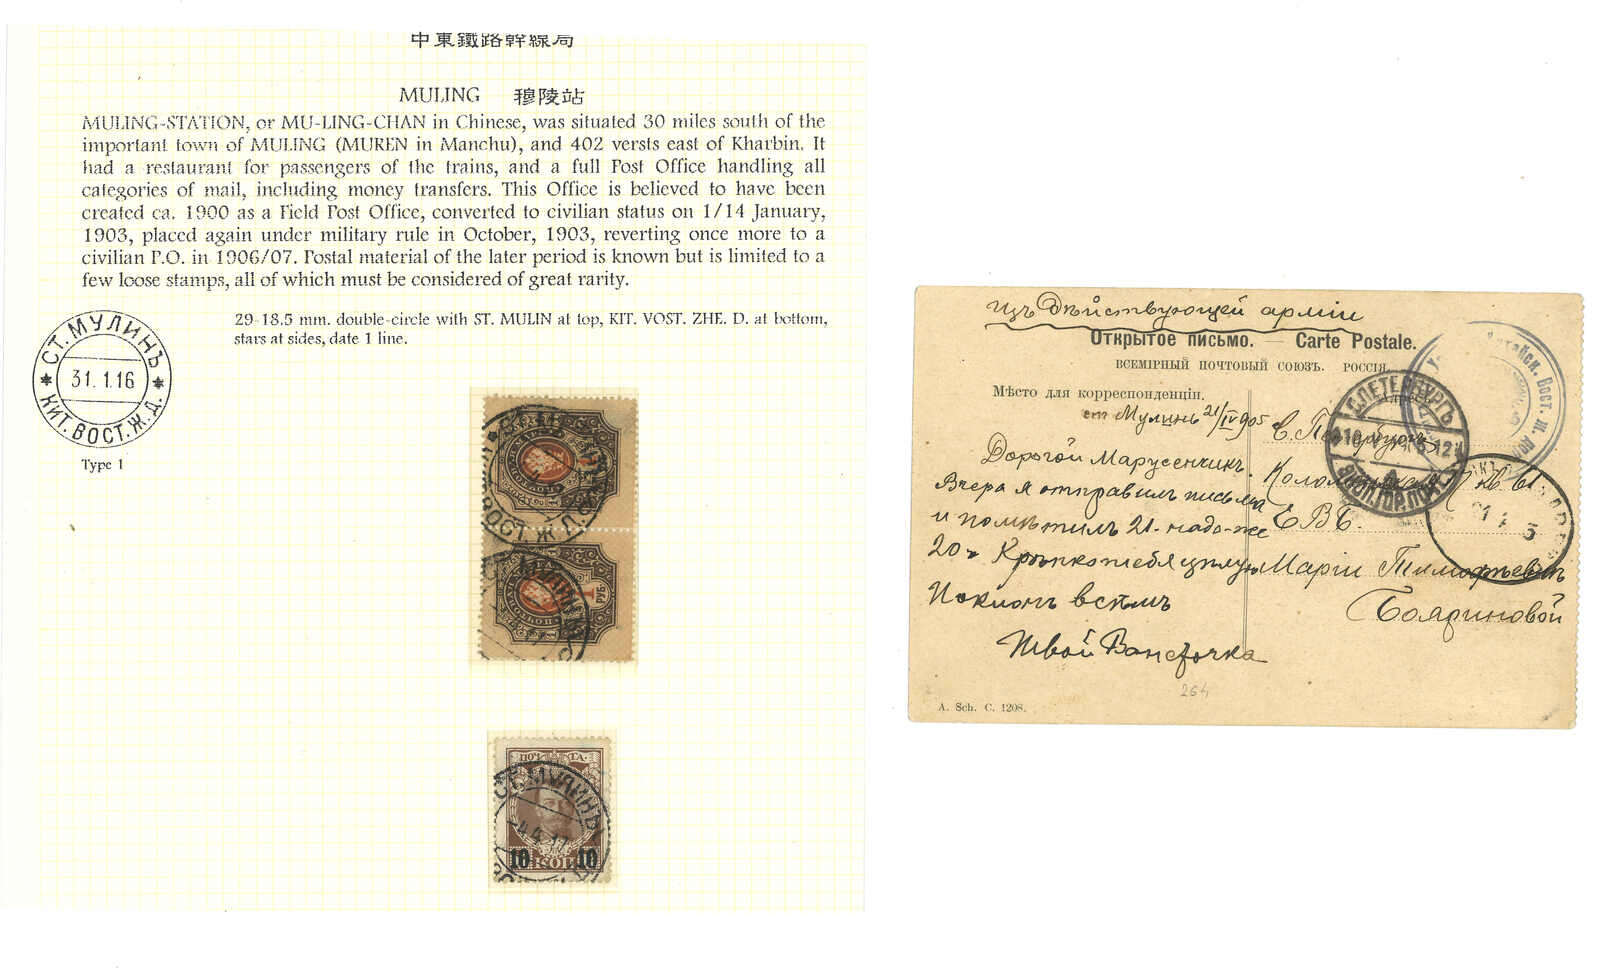 中東鐵路幹線局
MULING 穆陵站
MULING-STATION, or MU-LING-CHAN in Chinese, was situated 30 miles south of the
important town of MULING (MUREN in Manchu), and 402 versts east of Kharbin. It
had a restaurant for passengers of the trains, and a full Post Office handling all
categories of mail, including money transfers. This Office is believed to have been
created ca. 1900 as a Field Post Office, converted to civilian status on 1/14 January,
1903, placed again under military rule in October, 1903, reverting once more to a
civilian P.O. in 1906/07. Postal material of the later period is known but is limited to a
few loose stamps, all of which must be considered of great rarity.
29-18.5 mm. double-circle with ST. MULIN at top, KIT. VOST. ZHE. D. at bottom,
stars at sides, date 1 line.
СТ. МУЛИНЪ
31.1.16
КИТ. ВОСТ. Ж. Д.
Type 1
ВОСТ. Ж. Д.
МУЛИНЪ
1 РУБ
ПОЧТА.
СТ. МУЛИНЪ
-4.4.17
10 КОП 10
изъ Дѣйствующей арміи
Открытое письмо. — Carte Postale.
ВСЕМІРНЫЙ ПОЧТОВЫЙ СОЮЗЪ. РОССІЯ.
Мѣсто для корреспонденціи.
Адрес
ст Мулинь 21/IV 905
С.ПЕТЕРБУРГЪ
Вост. ж. дор
Дорогой Марусенчик.
Вчера я отправилъ письма
и помѣтилъ 21. надо-же
20. Крѣпко тебя цѣлую
Поклонъ всѣмъ
Твой Ванечка
С. Петербургъ
ЕВБ.
Маріи Тимофѣевнѣ
Бояриновой
264
A. Sch. C. 1208.